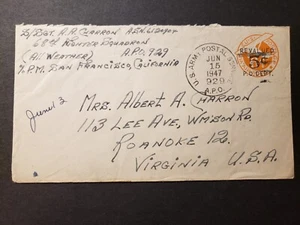 S/SGT. A. A. CHARRON
68TH FIGHTER SQUADRON
(ALL WEATHER) A.P.O. 929
% P.M. SAN FRANCISCO, CALIFORNIA
U.S. ARMY POSTAL
JUN
15
1947
929
A.P.O.
REVALUED
5¢
P.O. DEPT.
June 2
MRS. ALBERT A. CHARRON
113 LEE AVE, WMSON RD.
ROANOKE 12.
VIRGINIA U.S.A.